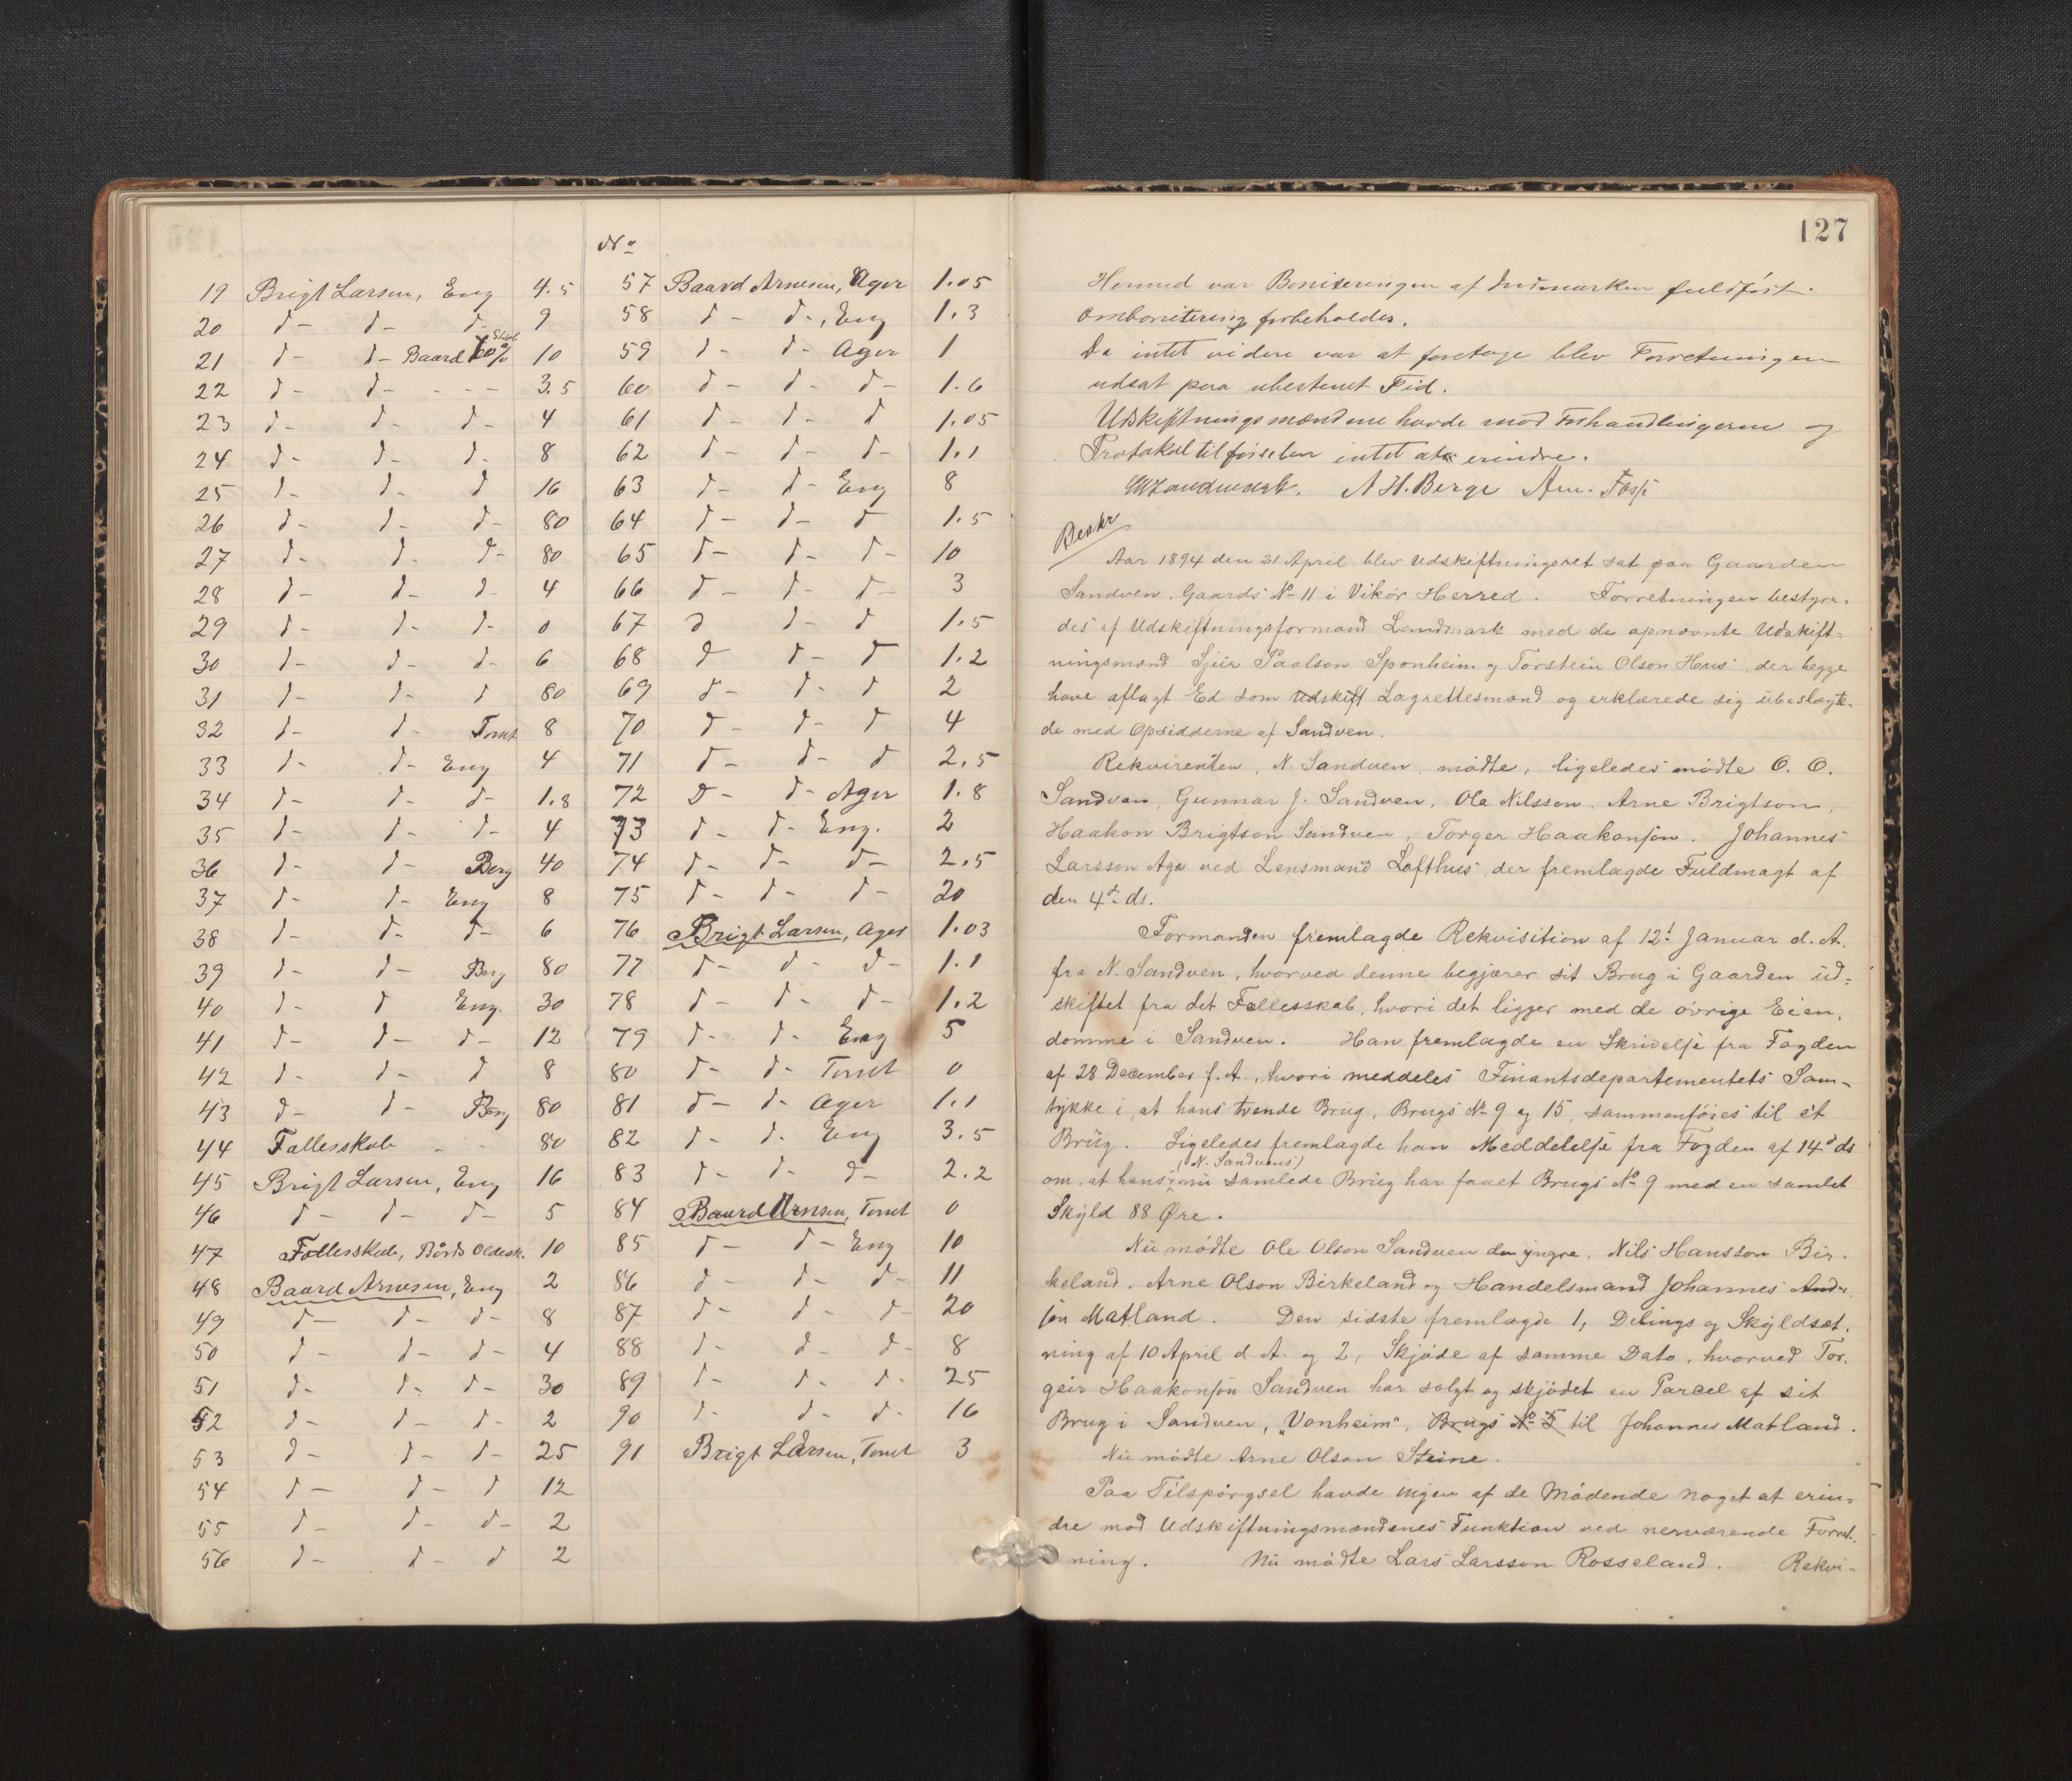 19 Brigt Larsen, Eng 4.5
20 d- d- d- 9
21 d- d- Baard 60% Skob 10
22 d- d- - - - 3.5
23 d- d- d- 4
24 d- d- d- 8
25 d- d- d 16
26 d- d- d- 80
27 d- d- d- 80
28 d- d- d- 4
29 d- d- d- 0
30 d- d- d- 6
31 d- d- d 80
32 d- d- Tomt 8
33 d- d- Eng 4
34 d- d- d- 1.8
35 d- d- d- 4
36 d- d- Berg 40
37 d- d- Eng 8
38 d- d- d- 6
39 d- d- Berg 80
40 d- d Eng. 30
41 d- d- d- 12
42 d- d- d 8
43 d- d- Berg 80
44 Fællesskab - - 80
45 Brigt Larsen, Eng 16
46 d- d- d- 5
47 Fællesskab, Bårds Oldesk. 10
48 Baard Arnesen, Eng 2
49 d- d- d- 8
50 d- d- d- 4
51 d- d- d- 30
52 d- d- d- 2
53 d- d- d- 25
54 d- d- d 12
55 d- d- d- 2
56 d- d- d 2
No
57 Baard Arnesen, Ager 1.05
58 d- d-, Eng 1.3
59 d- d- Ager 1
60 d- d- d- 1.6
61 d- d- d 1.05
62 d- d- d- 1.1
63 d- d- Eng 8
64 d- d- d 1.5
65 d- d- d- 10
66 d- d- d- 3
67 d d- d 1.5
68 d d- d 1.2
69 d- d- d 2
70 d- d- d 4
71 d- d- d 2.5
72 d- d- Ager 1.8
73 d- d- Eng. 2
74 d- d- d- 2.5
75 d- d- d- 20
76 Brigt Larsen, Ager 1.03
77 d- d- d- 1.1
78 d- d- d- 1.2
79 d- d- Eng 5
80 d- d- Tomt 0
81 d- d- Ager 1.1
82 d- d- Eng 3.5
83 d- d- d- 2.2
84 Baard Arnesen, Tomt 0
85 d- d- Eng 10
86 d- d- d- 11
87 d- d- d- 20
88 d- d- d- 8
89 d- d- d- 25
90 d- d- d- 16
91 Brigt Larsen, Tomt 3
127
Hermed var Boniteringen af Indmarken fuldført.
Ombonitering forbeholdes.
Da intet videre var at foretage blev Forretningen
udsat paa ubestemt Tid.
Udskiftningsmændene havde mod Forhandlingerne og
Protokoltilførselen intet at erindre.
Landmark. A H. Berge Arn. Fosse
Beskr
Aar 1894 den 21 April blev Udskiftningsret sat paa Gaarden
Sandven, Gaards No 11 i Vikør Herred. Forretningen bestyre-
des af Udskiftningsformand Landmark med de opnævnte Udskift-
ningsmænd Sjur Paalson Sponheim og Torstein Olson Hus, der begge
have aflagt Ed som Udskift Lagrettesmænd og erklærede sig ubeslægte-
de med Opsidderne af Sandven.
Rekvirenten, N. Sandven, mødte, ligeledes mødte O. O.
Sandven, Gunnar J. Sandven, Ole Nilsson, Arne Brigtson,
Haakon Brigtson Sandven, Torger Haakonson. Johannes
Larsson Aga ved Lensmand Lofthus, der fremlagde Fuldmagt af
den 4de ds.
Formanden fremlagde Rekvisition af 12t Januar d. A.
fra N. Sandven, hvorved denne begjærer sit Brug i Gaarden ud-
skiftet fra det Fællesskab, hvori det ligger med de øvrige Eien-
domme i Sandven. Han fremlagde en Skrivelse fra Fogden
af 28 December f. A., hvori meddeles Finantsdepartementets Sam-
tykke i, at hans tvende Brug, Brugs No 9 og 15, sammenføies til ét
Brug. Ligeledes fremlagde han Meddelelse fra Fogden af 14d ds
(N. Sandvens)
om, at hans nu samlede Brug har faaet Brugs No 9 med en samlet
Skyld 88 Øre.
Nu mødte Ole Olson Sandven den yngre, Nils Hansson Bir-
keland, Arne Olson Birkeland og Handelsmand Johannes Ander-
son Matland. Den sidste fremlagde 1, Delings og Skyldsæt-
ning af 10 April d. A. og 2, Skjøde af samme Dato, hvorved Tor-
geir Haakonson Sandven har solgt og skjødet en Parcel af sit
Brug i Sandven, „Vonheim“, Brugs No 5 til Johannes Matland.
Nu mødte Arne Olson Steine.
Paa Tilspørgsel havde ingen af de Mødende noget at erin-
dre mod Udskiftningsmændenes Funktion ved nerværende Forret-
ning. Nu mødte Lars Larsson Rosseland. Rekvi-